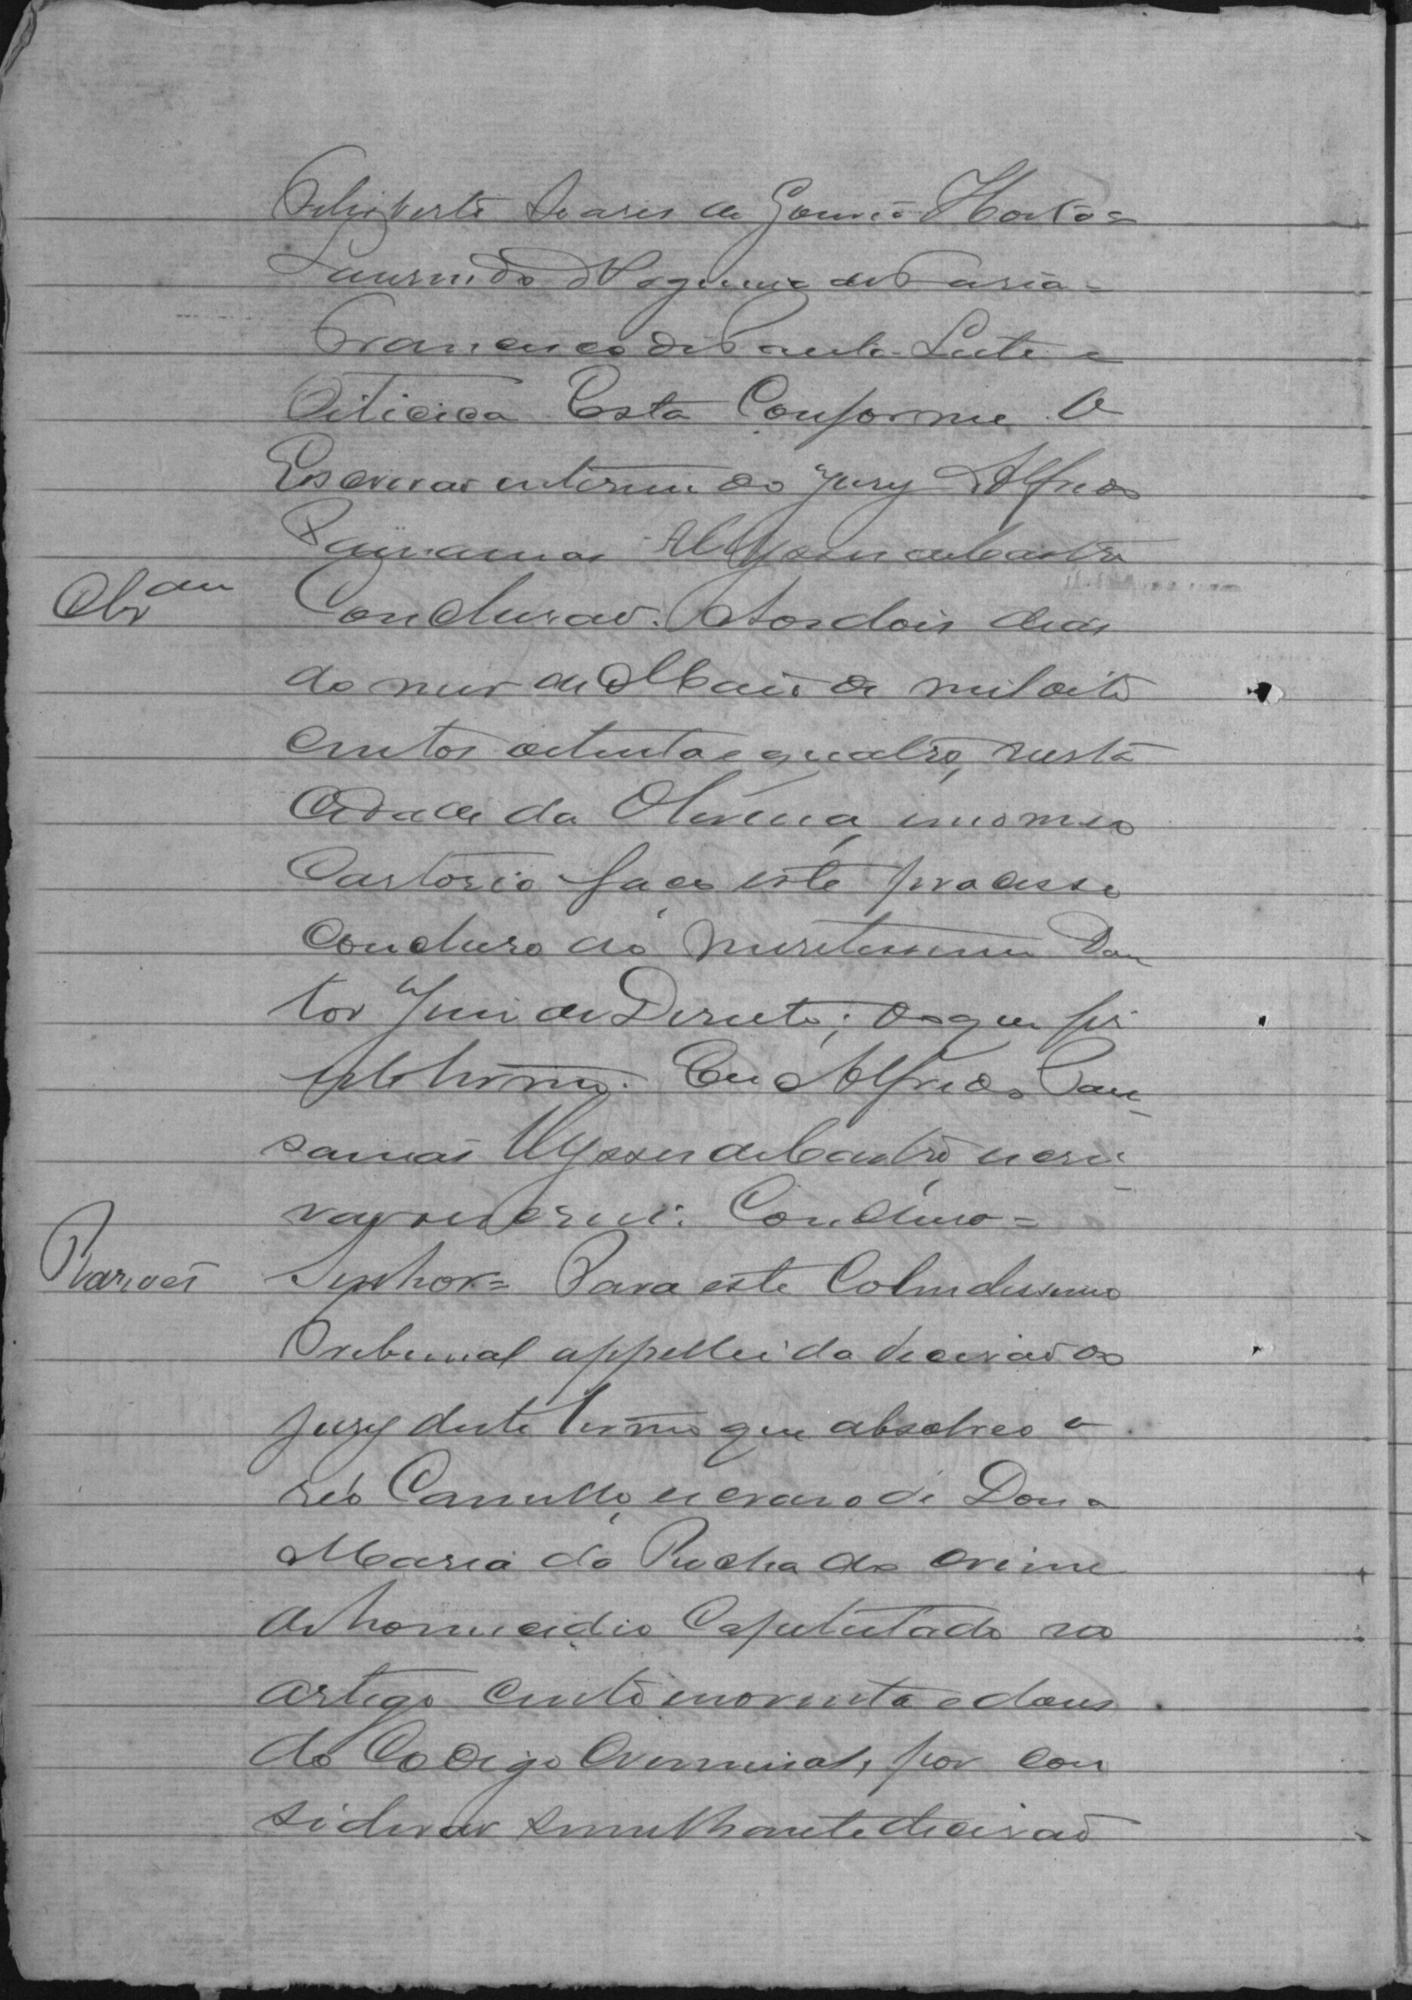 Feliberto Soares de Gouvêa Horta =
Laurindo Nogueira de Faria =
Francisco de Paula Leite e
Oiticica Está Conforme O
Escrivão interino do Jury Alfredo
Paysamas Ulysses de Castro
Clsam
Conclusão. Aos dois dias
do mes de Maio de mil oito
centos oitenta e quatro, nesta
Cidade da Oliveira, em o meo
Cartorio faço este processo
concluso ao meretissimo Dou
tor Juiz de Direito; do que fis
este termo. Eu Alfredo Pau
samas Ulysses de Castro escri
vão o escrevi. Concluso =
Razoes
Senhor = Para este Colendissimo
Tribunal appellei da decisão do
Jury deste termo que absolveo o
réo Camillo, escravo de Dona
Maria da Rocha do crime
de homicidio Capitulado no
artigo cento e noventa e dous
do Codigo Criminal, por con
siderar semelhante decisão